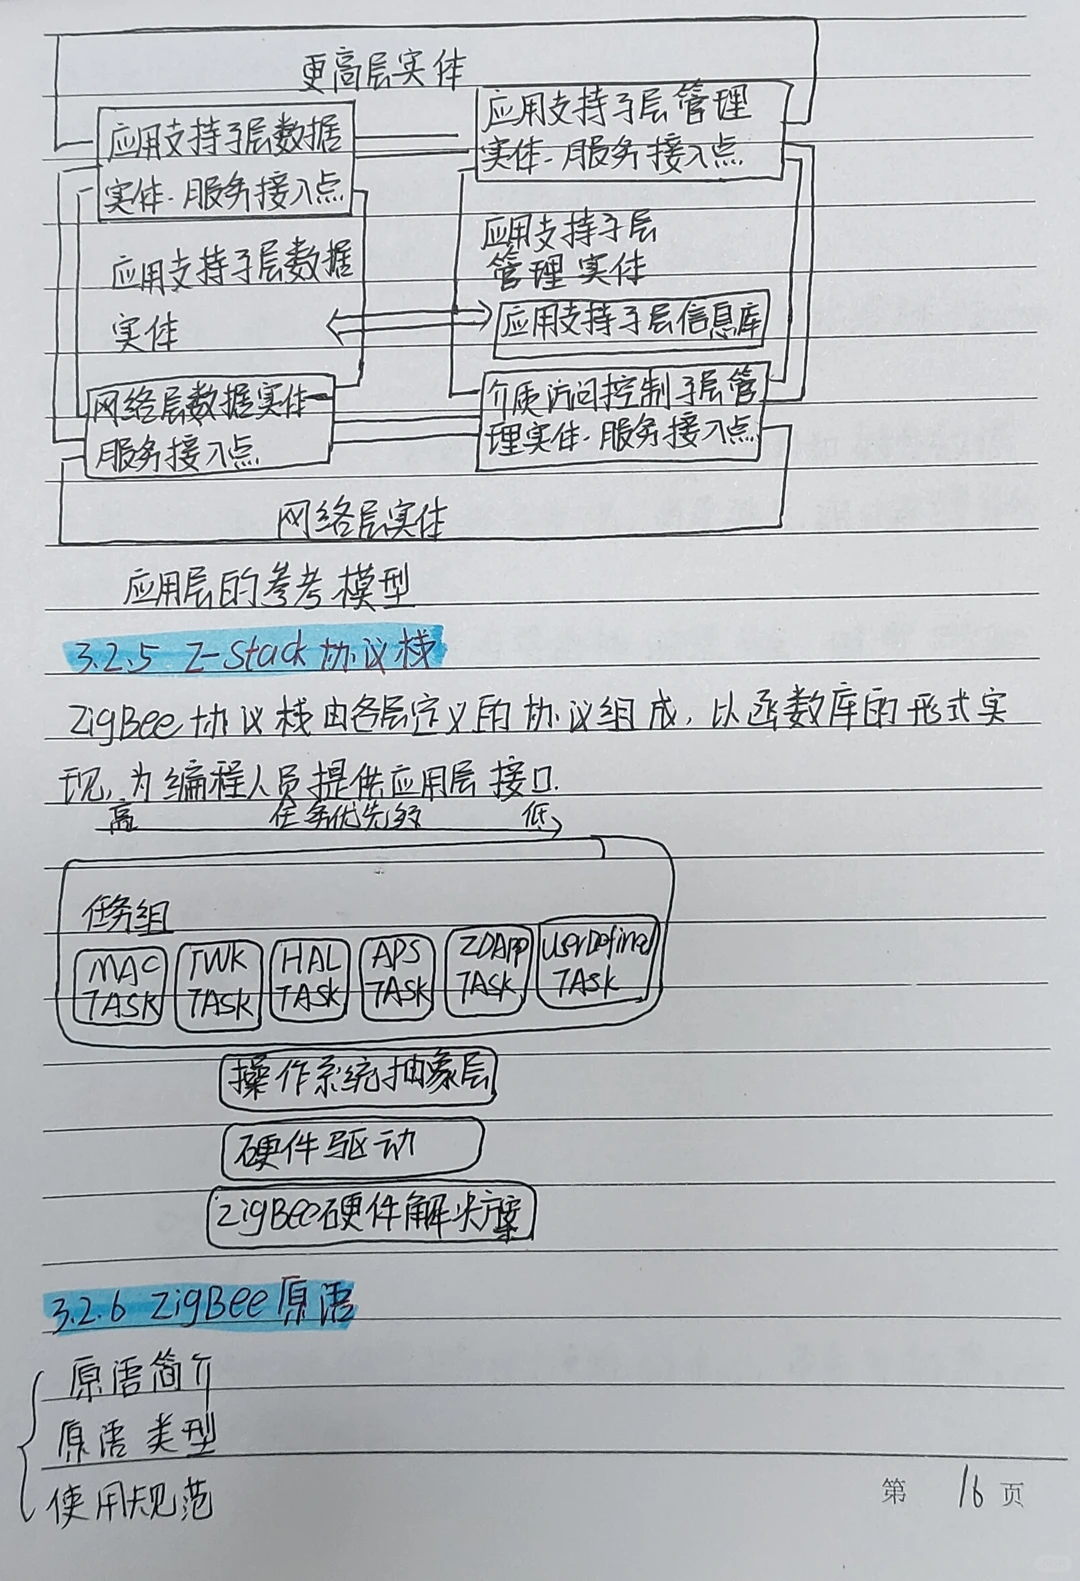 更高层实体
应用支持子层数据
实体-服务接入点
应用支持子层管理
实体-服务接入点
应用支持子层数据
实体
应用支持子层
管理实体
应用支持子层信息库
网络层数据实体-
服务接入点
介质访问控制子层管
理实体-服务接入点
网络层实体
应用层的参考模型
3.2.5 Z-Stack协议栈
ZigBee协议栈由各层定义的协议组成,以函数库的形式实
现,为编程人员提供应用层接口.
高 任务优先级 低
任务组
MAC TASK
TWK TASK
HAL TASK
APS TASK
ZDApp TASK
UserDefined TASK
操作系统抽象层
硬件驱动
ZigBee硬件解决方案
3.2.6 ZigBee原语
原语简介
原语类型
使用规范
第 16 页